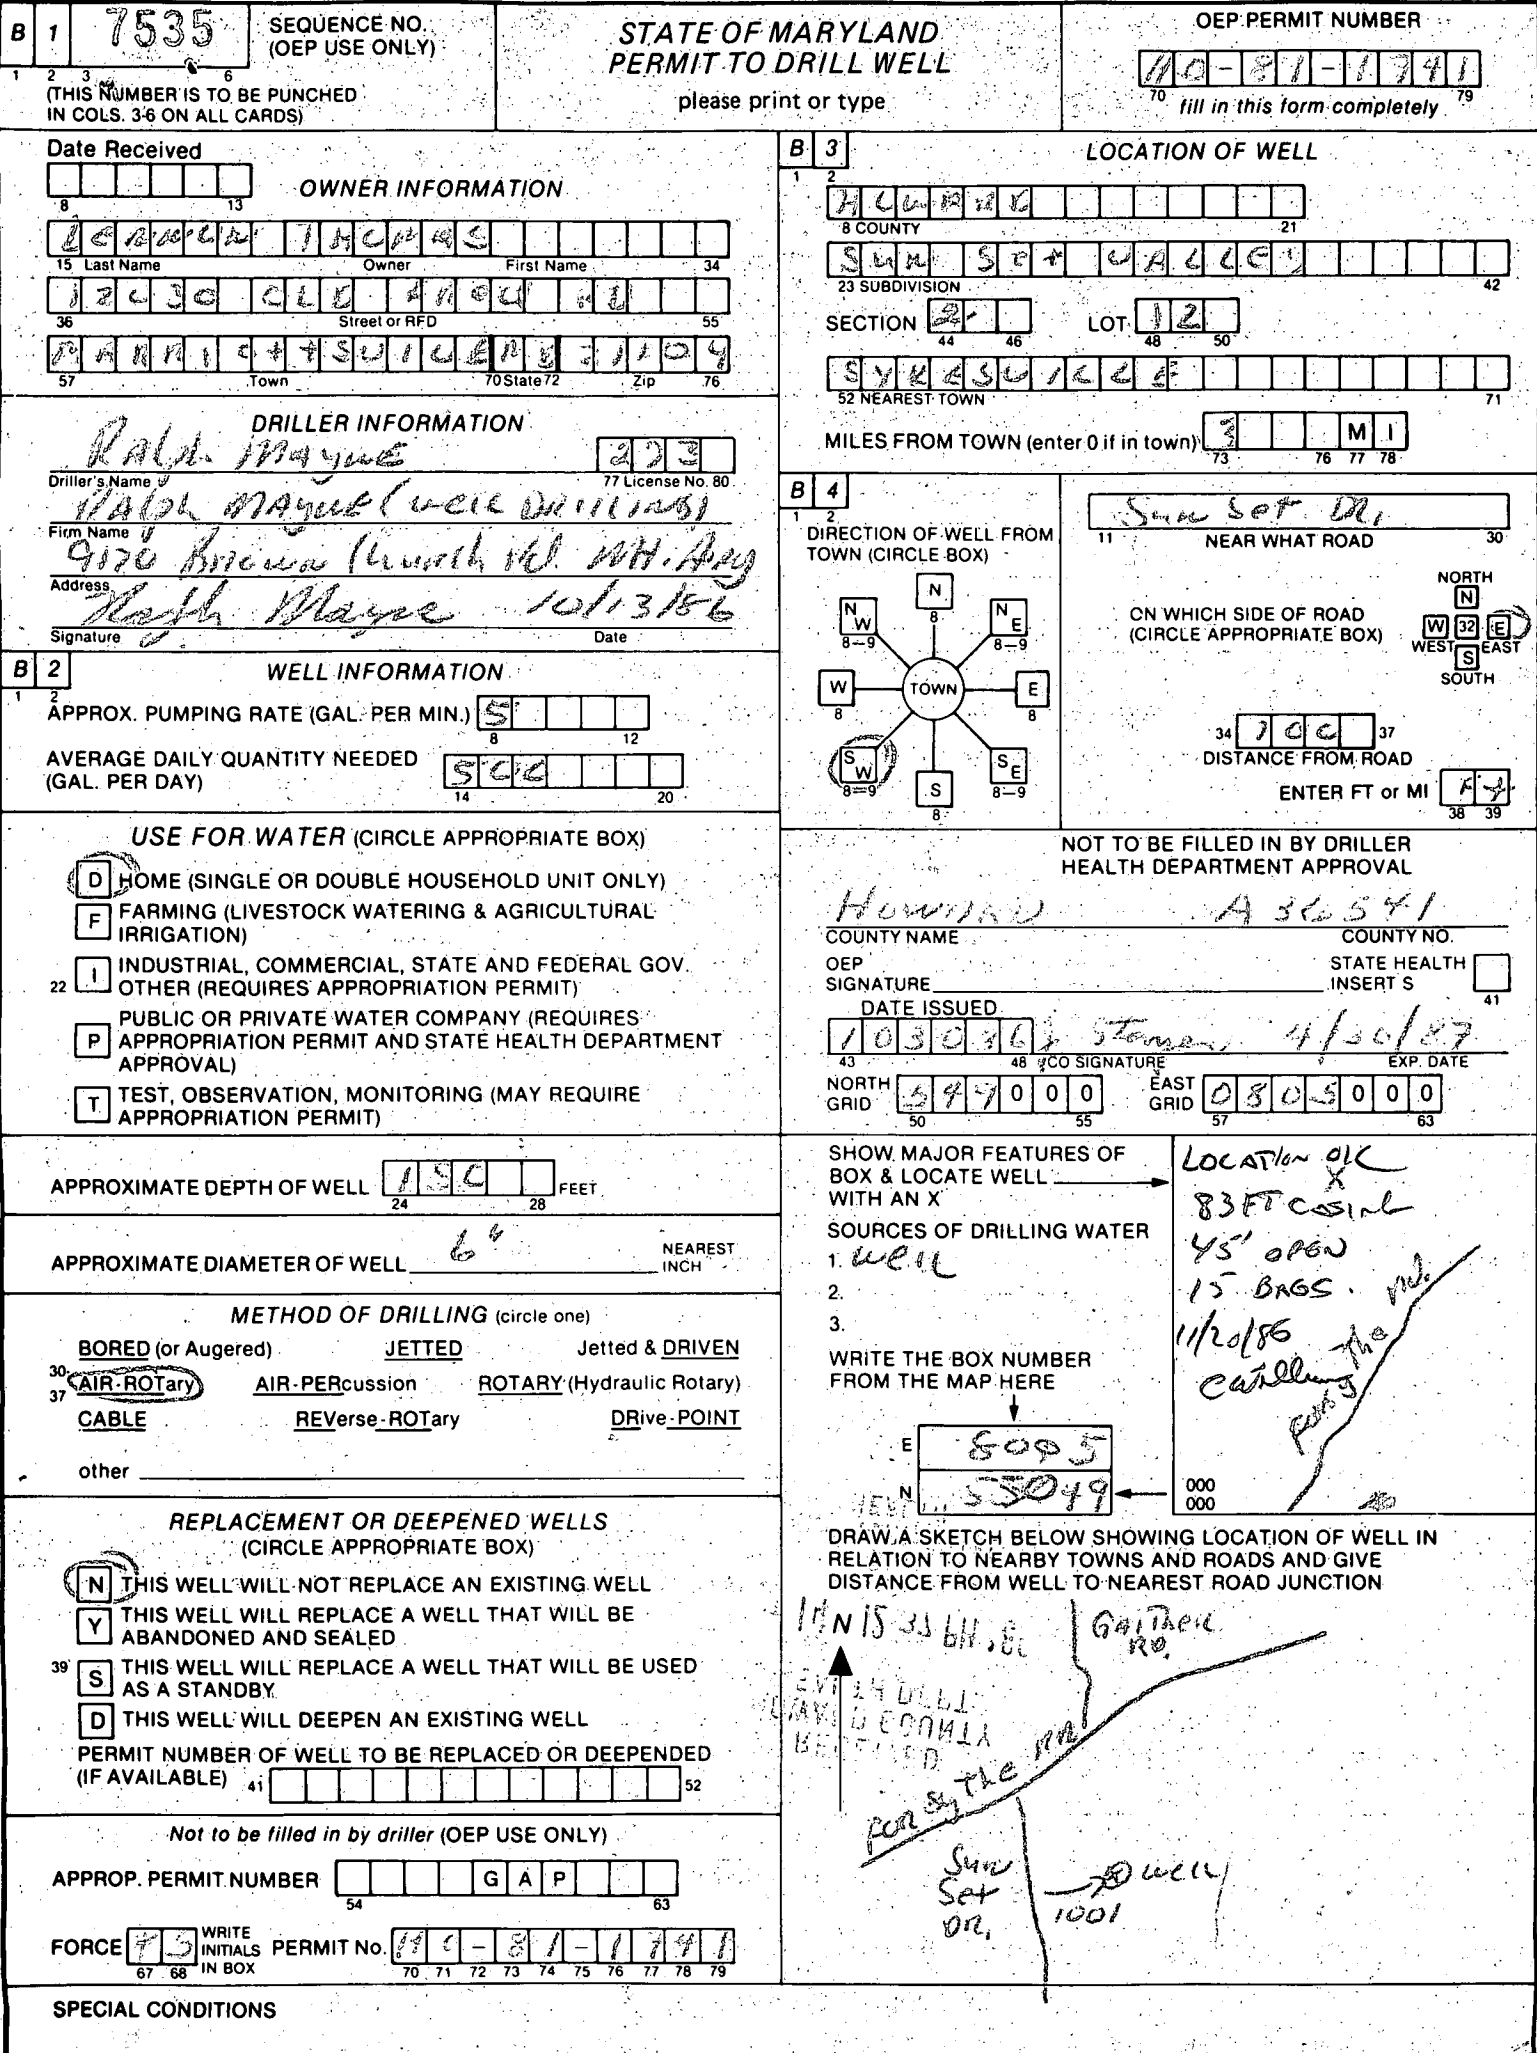 B 1 7535 SEQUENCE NO. (OEP USE ONLY)
1 2 3 6
(THIS NUMBER IS TO BE PUNCHED
IN COLS. 3-6 ON ALL CARDS)
STATE OF MARYLAND
PERMIT TO DRILL WELL
please print or type
OEP PERMIT NUMBER
HO-81-1741
70 79
fill in this form completely
Date Received
8 13
OWNER INFORMATION
THOMAS
15 Last Name Owner First Name 34
12030 OLD RD
36 Street or RFD 55
MARRIOTTSVILLE MD 21104
57 Town 70 State 72 Zip 76
DRILLER INFORMATION
Ralph Mayne 273
Driller's Name 77 License No. 80
Ralph MAYNE (well DRILLING)
Firm Name
9120 Brown Church Rd. Mt. Airy
Address
Ralph Mayne 10/13/86
Signature Date
B 2 WELL INFORMATION
1 2
APPROX. PUMPING RATE (GAL. PER MIN.) 5
8 12
AVERAGE DAILY QUANTITY NEEDED
(GAL. PER DAY) 500
14 20
USE FOR WATER (CIRCLE APPROPRIATE BOX)
D HOME (SINGLE OR DOUBLE HOUSEHOLD UNIT ONLY)
F FARMING (LIVESTOCK WATERING & AGRICULTURAL
IRRIGATION)
22 I INDUSTRIAL, COMMERCIAL, STATE AND FEDERAL GOV.
OTHER (REQUIRES APPROPRIATION PERMIT)
P PUBLIC OR PRIVATE WATER COMPANY (REQUIRES
APPROPRIATION PERMIT AND STATE HEALTH DEPARTMENT
APPROVAL)
T TEST, OBSERVATION, MONITORING (MAY REQUIRE
APPROPRIATION PERMIT)
APPROXIMATE DEPTH OF WELL 150 FEET
24 28
APPROXIMATE DIAMETER OF WELL 6" NEAREST
INCH
METHOD OF DRILLING (circle one)
BORED (or Augered) JETTED Jetted & DRIVEN
30-37 AIR-ROTary AIR-PERcussion ROTARY (Hydraulic Rotary)
CABLE REVerse-ROTary DRive-POINT
other
REPLACEMENT OR DEEPENED WELLS
(CIRCLE APPROPRIATE BOX)
N THIS WELL WILL NOT REPLACE AN EXISTING WELL
Y THIS WELL WILL REPLACE A WELL THAT WILL BE
ABANDONED AND SEALED
39 S THIS WELL WILL REPLACE A WELL THAT WILL BE USED
AS A STANDBY
D THIS WELL WILL DEEPEN AN EXISTING WELL
PERMIT NUMBER OF WELL TO BE REPLACED OR DEEPENDED
(IF AVAILABLE) 41 52
Not to be filled in by driller (OEP USE ONLY)
APPROP. PERMIT NUMBER G A P
54 63
FORCE WRITE INITIALS IN BOX PERMIT No. HO-81-1741
67 68 70 71 72 73 74 75 76 77 78 79
SPECIAL CONDITIONS
B 3 LOCATION OF WELL
1 2
HOWARD
8 COUNTY 21
SUN SET VALLEY
23 SUBDIVISION 42
SECTION 2 LOT 12
44 46 48 50
SYKESVILLE
52 NEAREST TOWN 71
MILES FROM TOWN (enter 0 if in town) 3 M I
73 76 77 78
B 4
1 2
DIRECTION OF WELL FROM
TOWN (CIRCLE BOX)
N
8
N W
8-9
N E
8-9
W
8
TOWN
E
8
S W
8-9
S
8
S E
8-9
Sun Set DR.
11 NEAR WHAT ROAD 30
ON WHICH SIDE OF ROAD
(CIRCLE APPROPRIATE BOX)
NORTH
N
W 32 E
WEST EAST
S
SOUTH
34 100 37
DISTANCE FROM ROAD
ENTER FT or MI Ft
38 39
NOT TO BE FILLED IN BY DRILLER
HEALTH DEPARTMENT APPROVAL
Howard A 36541
COUNTY NAME COUNTY NO.
OEP
SIGNATURE
STATE HEALTH
INSERT S
41
DATE ISSUED
103086 4/30/87
43 48 CO SIGNATURE EXP. DATE
NORTH GRID 549000 EAST GRID 0805000
50 55 57 63
SHOW MAJOR FEATURES OF
BOX & LOCATE WELL
WITH AN X
SOURCES OF DRILLING WATER
1. well
2.
3.
WRITE THE BOX NUMBER
FROM THE MAP HERE
E 8005
N 55049
LOCATION OK
X
83 FT CASING
45' OPEN
15 BAGS.
11/20/86
Forsythe Rd.
000
000
DRAW A SKETCH BELOW SHOWING LOCATION OF WELL IN
RELATION TO NEARBY TOWNS AND ROADS AND GIVE
DISTANCE FROM WELL TO NEAREST ROAD JUNCTION
N
Gaither
RD.
Forsythe RD
Sun
Set
DR.
well
1001